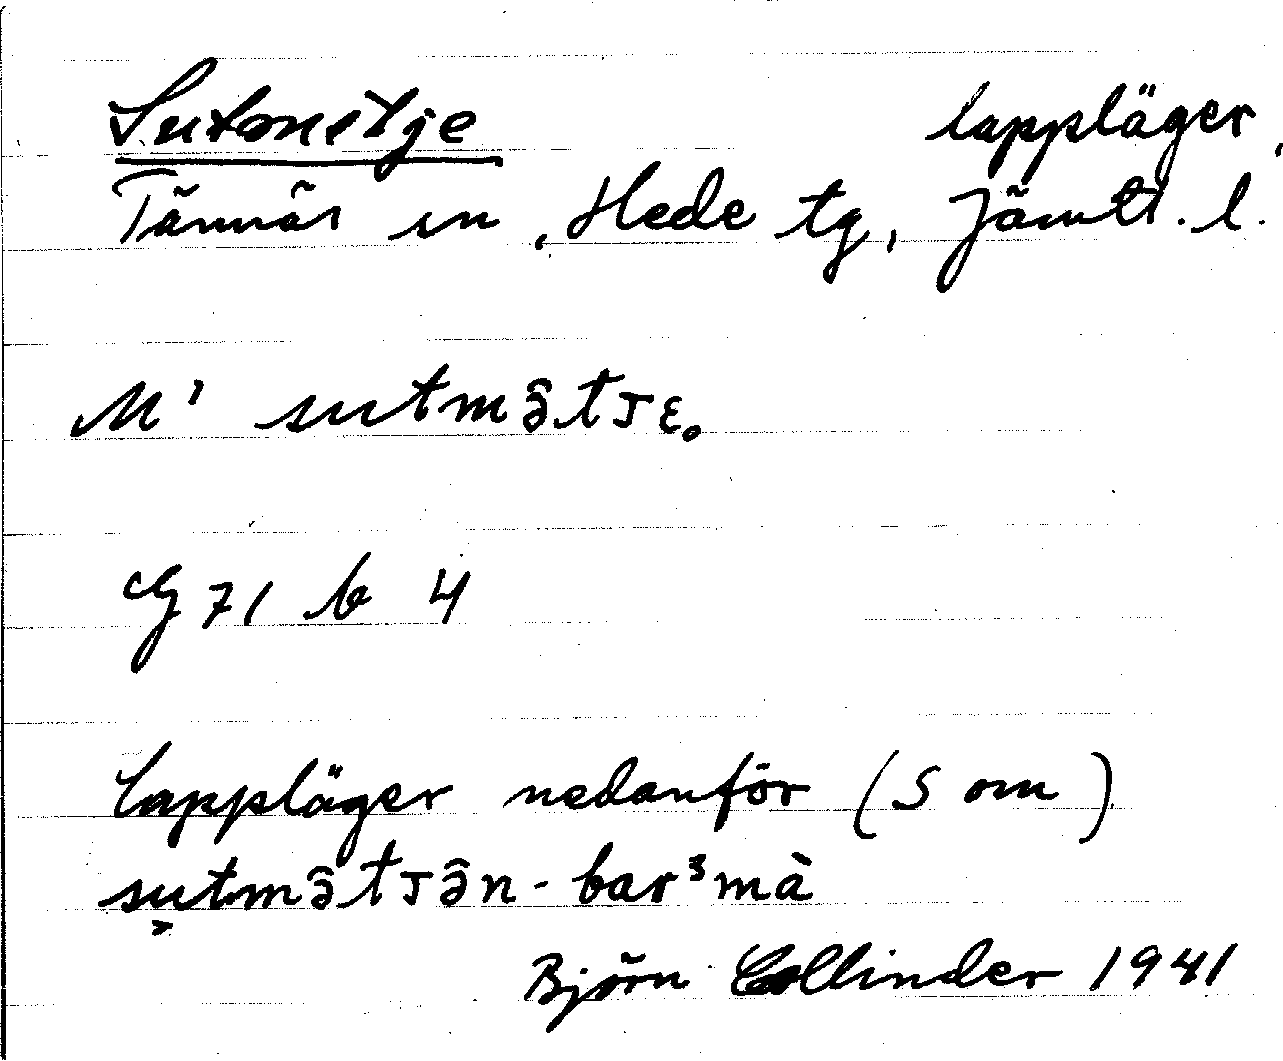 Sutmetje lappläger,
Tännäs sn, Hede tg, Jämtl. l.
M' sutmə̂tᴊɛ.
G 71 b 4
lappläger nedanför (S om)
sutmə̂tᴊə̂n-bar³mà
Björn Collinder 1941